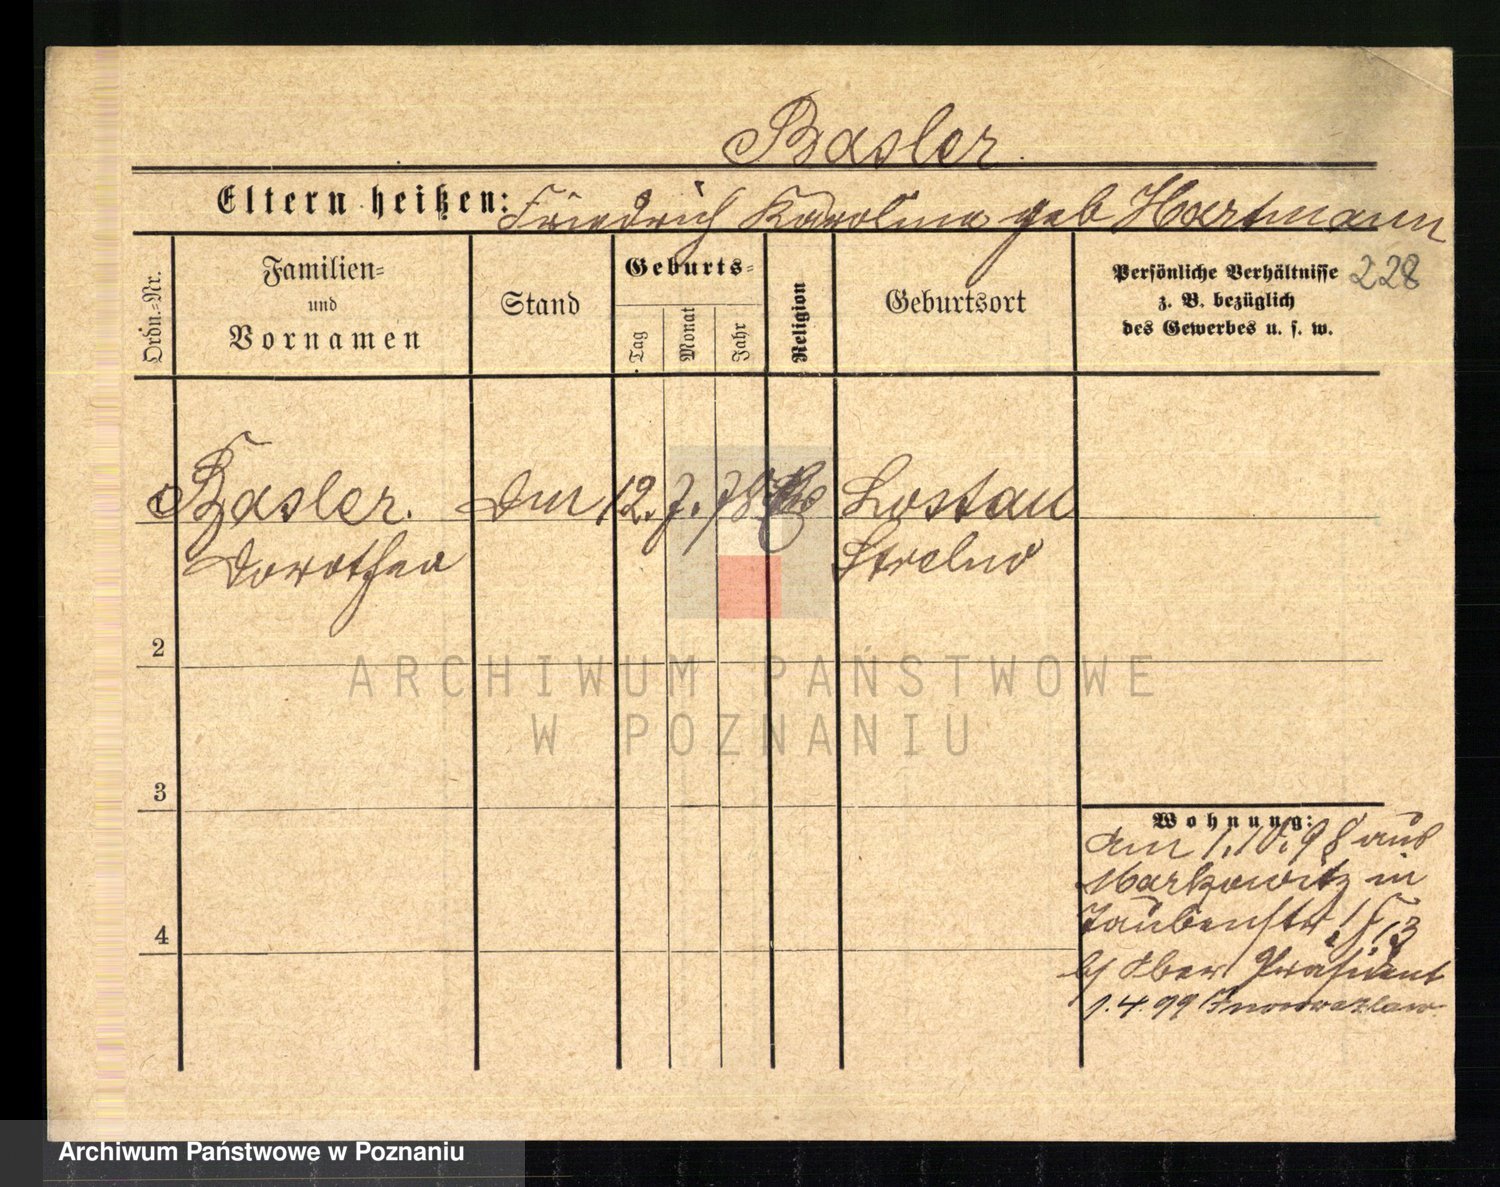 Basler.
Eltern heißen: Friedrich Karolina geb Hartmann
228
Ordn.=Nr.
Familien=
und
Vornamen
Stand
Geburts=
Tag
Monat
Jahr
Religion
Geburtsort
Persönliche Verhältnisse
z. B. bezüglich
des Gewerbes u. s. w.
Basler. 12. 7. 78 Lostau
Dorothea Strelno
2
ARCHIWUM PAŃSTWOWE
W POZNANIU
3
Wohnung:
am 1.10.98 aus
Markowitz in
Taubenstr.
4
b/ Ober Präsident
1.4.99 Inowrazlaw.
Archiwum Państwowe w Poznaniu